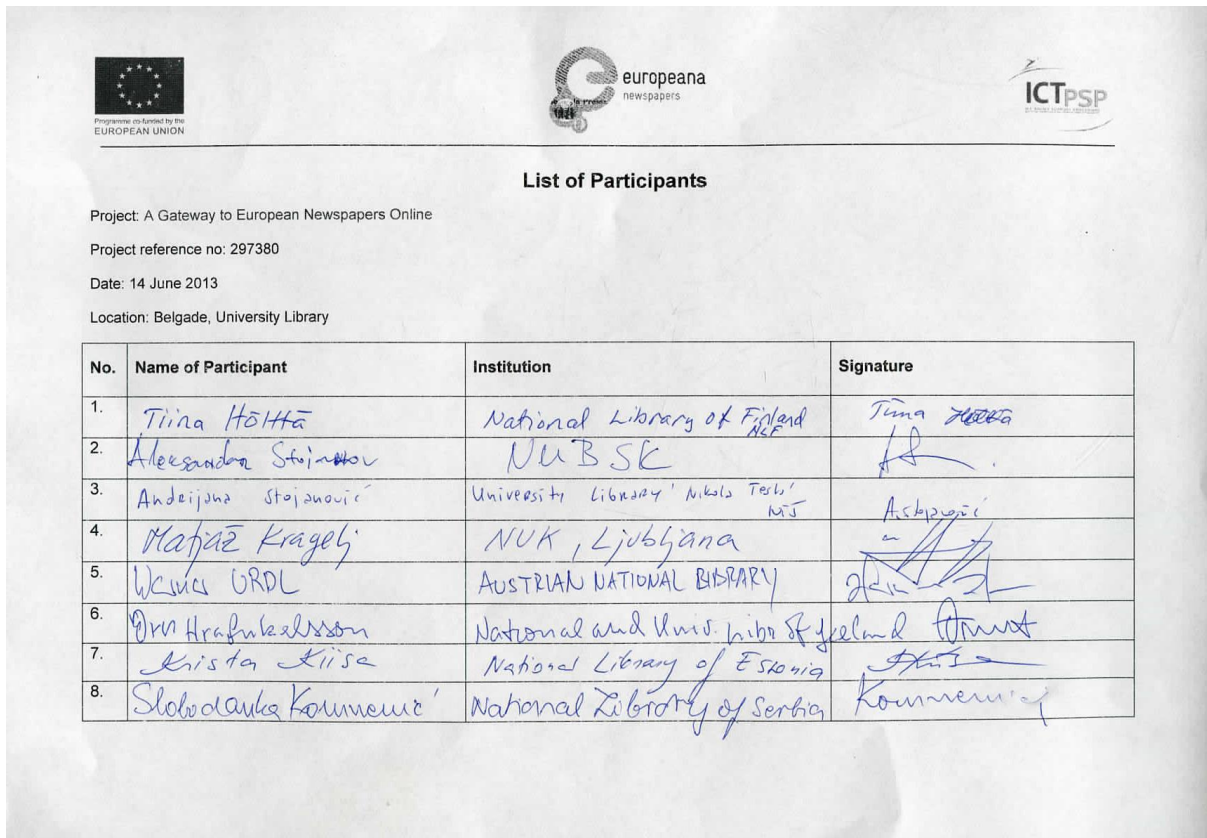 Programme co-funded by the
EUROPEAN UNION
europeana
newspapers
ICTPSP
List of Participants
Project: A Gateway to European Newspapers Online
Project reference no: 297380
Date: 14 June 2013
Location: Belgade, University Library
No. Name of Participant Institution Signature
1. Tiina Hölttä National Library of Finland NLF Tiina Hölttä
2. Aleksandar NUBSK
3. Andrijana Stojanović University Library 'Nikola Tesla'
4. Matjaž Kragelj NUK, Ljubljana
5. URDL AUSTRIAN NATIONAL LIBRARY
6. Örn Hrafnkelsson National and Univ. Libr of Iceland
7. Krista Kiisa National Library of Estonia
8. Slobodanka Komnenić National Library of Serbia Komnenić